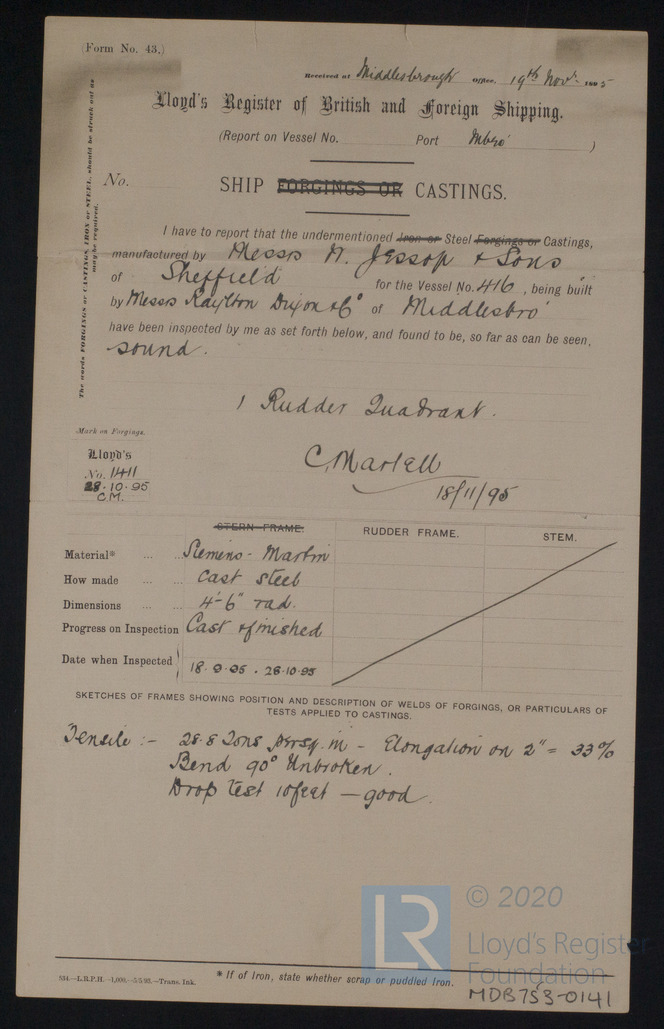 (Form No. 43.)
Received at Middlesbrough Office, 19th Novr. 1895
Lloyd's Register of British and Foreign Shipping.
(Report on Vessel No. Port Mbro' )
No. SHIP FORGINGS OR CASTINGS.
The words FORGINGS or CASTINGS, IRON or STEEL, should be struck out as may be required.
I have to report that the undermentioned Iron or Steel Forgings or Castings,
manufactured by Messrs W. Jessop & Sons
of Sheffield for the Vessel No. 416, being built
by Messrs Raylton Dixon & Co of Middlesbro'
have been inspected by me as set forth below, and found to be, so far as can be seen,
sound.
1 Rudder Quadrant.
Mark on Forgings.
Lloyd's
No. 1411
28.10.95
C.M.
C. Martell
18/11/95
STERN FRAME. RUDDER FRAME. STEM.
Material* ... ... Siemens-Martin
How made ... ... Cast Steel
Dimensions ... ... 4'-6" rad.
Progress on Inspection Cast & finished
Date when Inspected 18.9.95. 28.10.95
SKETCHES OF FRAMES SHOWING POSITION AND DESCRIPTION OF WELDS OF FORGINGS, OR PARTICULARS OF
TESTS APPLIED TO CASTINGS.
Tensile :- 28.8 Tons per sq. in - Elongation on 2" = 33%
Bend 90° Unbroken.
Drop test 10 feet - good.
LR
© 2020
Lloyd's Register
Foundation
* If of Iron, state whether scrap or puddled Iron.
554.—L.R.P.H.—1,000.—5/5/93.—Trans. Ink.
MDB753-0141